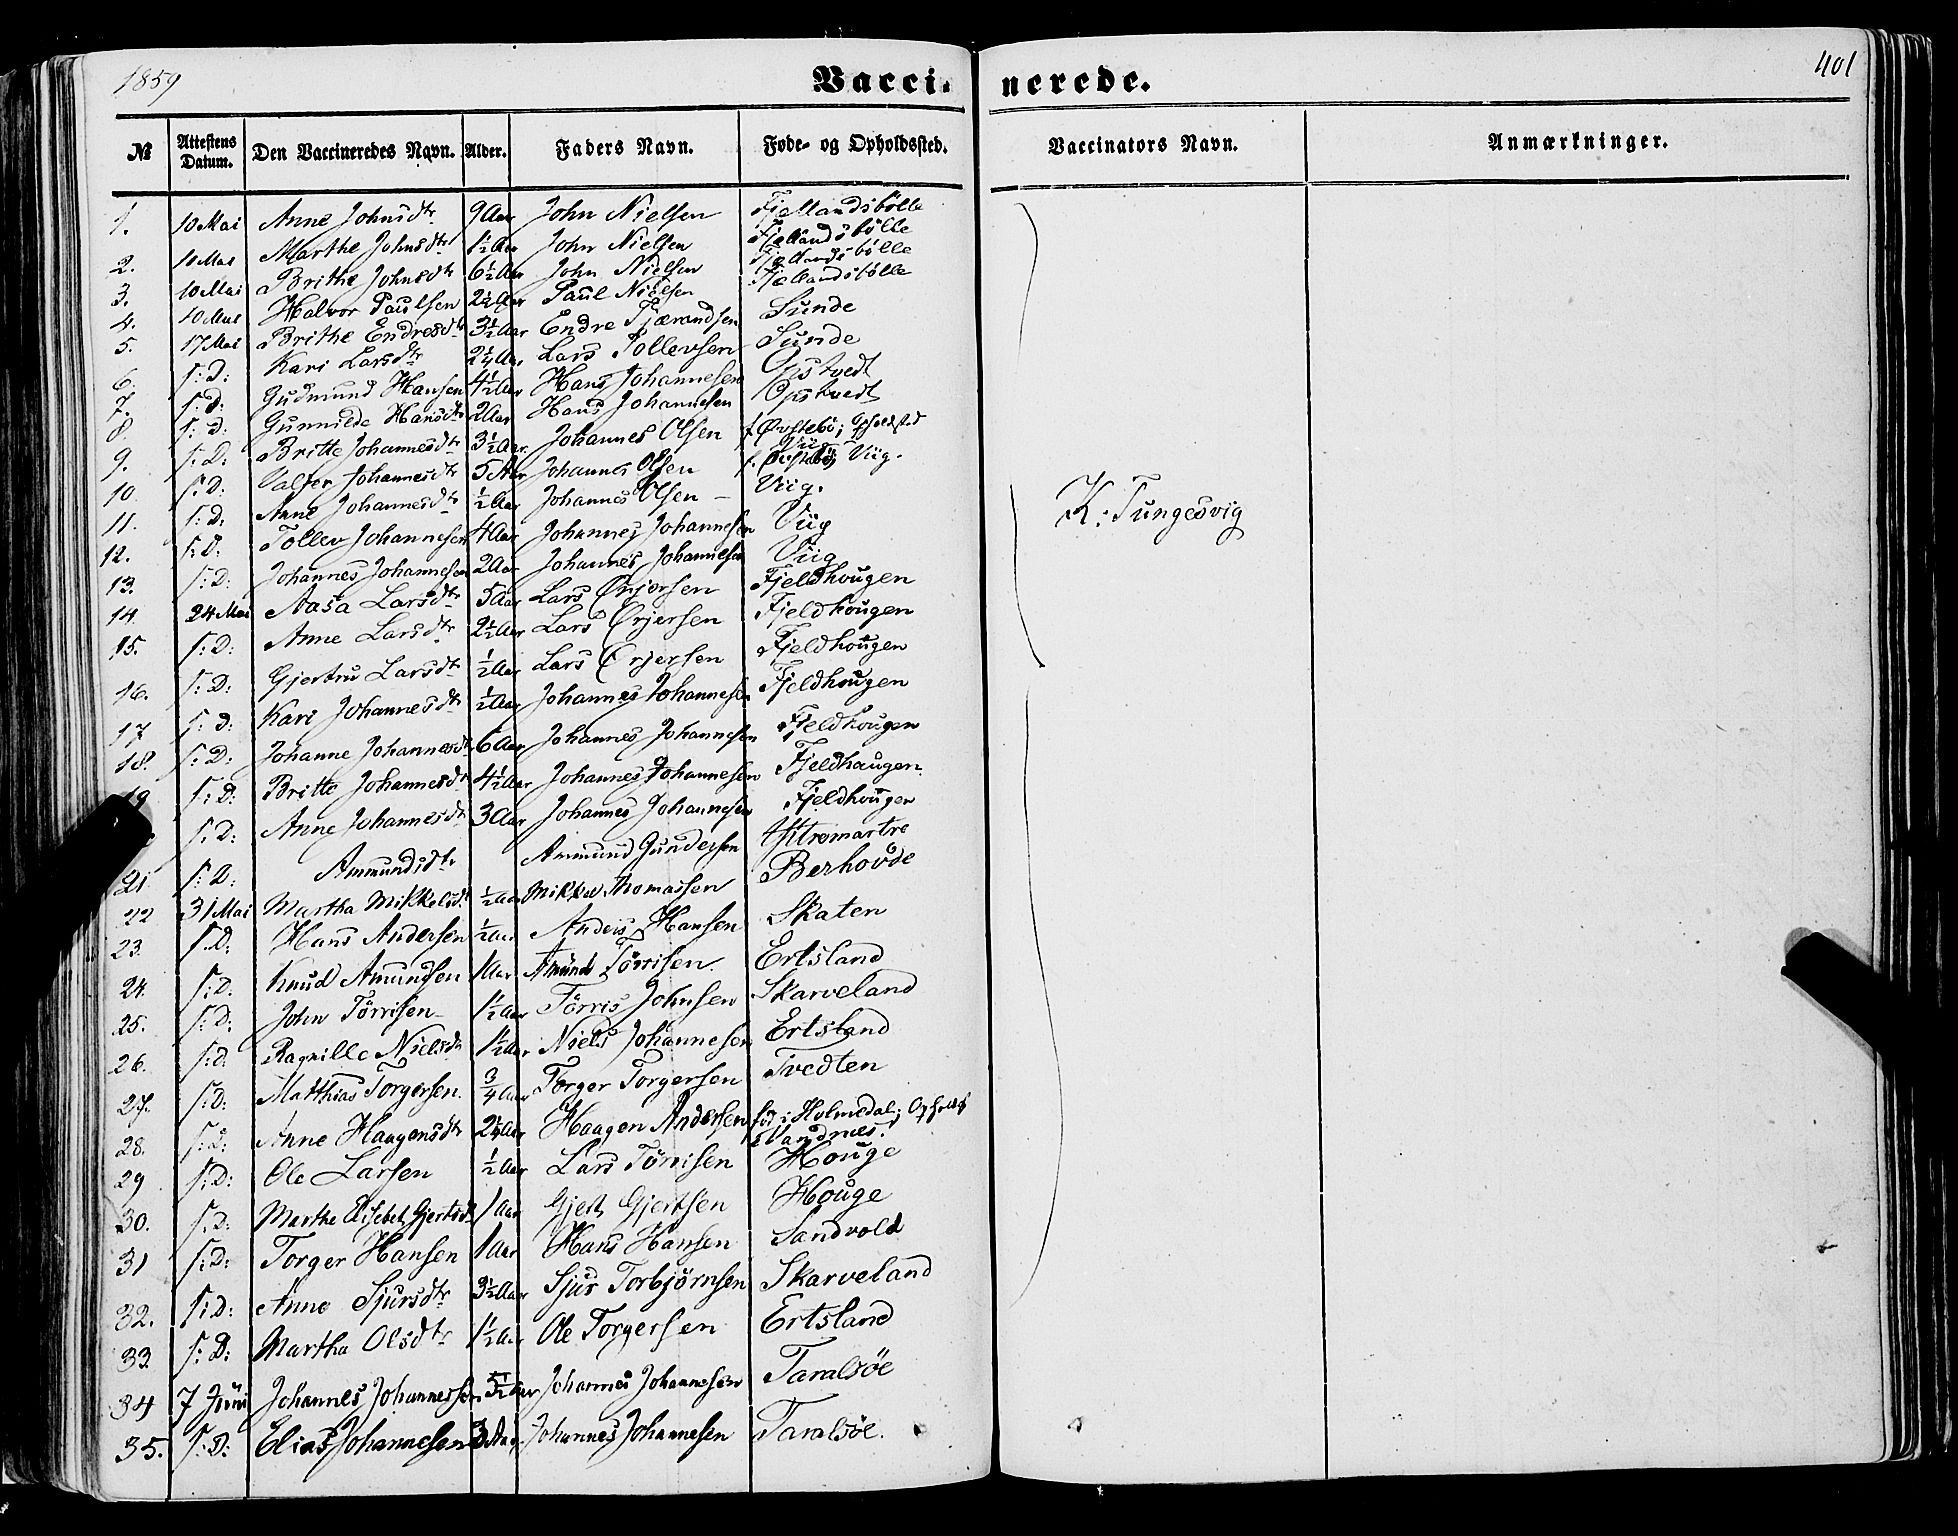 1859
Vaccinerede.
401
№ Attestens Datum. Den Vaccineredes Navn. Alder. Faders Navn. Føde- og Opholdssted. Vaccinators Navn. Anmærkninger.
1. 10 Mai Anne Johnsdtr 9 Aar John Nielsen Fjellandsbølle
2. 10 Mai Marthe Johnsdtr 1½ Aar John Nielsen Fjellandsbølle
3. 10 Mai Brithe Johnsdtr 6½ Aar John Nielsen Fjellandsbølle
4. 10 Mai Halvor Paulsen 2½ Aar Paul Nielsen Fjellandsbølle
5. 17 Mai Brithe Endresdtr 3½ Aar Endre Tjærandsen Sunde
6. s: D: Kari Larsdtr 2¼ Aar Lars Tollevsen Sunde
7. s: D: Gudmund Hansen 4½ Aar Hans Johannesen Opstvedt
8. s: D: Gunnilde Hansdtr 2 Aar Hans Johannesen Opstvedt
9. s: D: Britte Johannesdtr 3½ Aar Johannes Olsen f. Øvstebø; Opholdsted Viig
10. s: D: Johannesdtr 5 Aar Johannes Olsen f. Øvstebø; Viig.
11. s: D: Anne Johannesdtr ½ Aar Johannes Olsen – Viig.
12. s: D: Tollev Johannesen 4 Aar Johannes Johannesen Viig
13. s: D: Johannes Johannesen 2 Aar Johannes Johannesen Viig
14. 24 Mai Aasa Larsdtr 5 Aar Lars Ørjersen Fjeldhougen
15. s: D: Anne Larsdtr 2½ Aar Lars Ørjersen Fjeldhougen
16. s: D: Gjertru Larsdtr ½ Aar Lars Ørjersen Fjeldhougen
17 s: D: Kari Johannesdtr ½ Aar Johannes Johannesen Fjeldhougen
18. s: D: Johanne Johannesdtr 6 Aar Johannes Johannesen Fjeldhougen
19 s: D: Britte Johannesdtr 4½ Aar Johannes Johannesen Fjeldhaugen.
s: D: Anne Johannesdtr 3 Aar Johannes Johannesen Fjeldhougen
21 s: D: Ammundsdtr Ammund Gundersen
22 31 Mai Martha Mikkelsdtr ½ Aar Mikkel Thomassen Berhovde
23. s: D: Hans Andersen ½ Aar Anders Hansen Skaten
24. s: D. Knud Amundsen 1 Aar Amund Tørrisen. Ertsland
25. s: D: John Tørrisen 1½ Aar Tørris Johnsen Skarveland
26. s: D. Ragnille Nielsdtr 1½ Aar Niels Johannesen Ertsland
27. s: D: Matthias Torgersen. ¾ Aar Torger Torgersen Tvedten
28. s: D: Anne Haagensdtr 2¼ Aar Haagen Andersen fød i Holmedal; Opholdst Vandnes.
29 s: D: Ole Larsen ½ Aar Lars Tørrisen Houge
30. s: D: Marthe Elisebet Gjertsdtr 1 Aar Gjert Gjertsen Houge
31 s: D: Torger Hansen 1 Aar Hans Hansen Sandvold
32. s: D: Anne Sjursdtr 3½ Aar Sjur Torbjørnsen Skarveland
33. s: D: Martha Olsdtr 1½ Aar Ole Torgersen Ertsland
34 7 Juni Johannes Johannessen 5½ Aar Johannes Johannesen Taralsøe
35. s: D: Elias Johannesen 3 Aar Johannes Johannesen Taralsøe.
K: Tungesvig